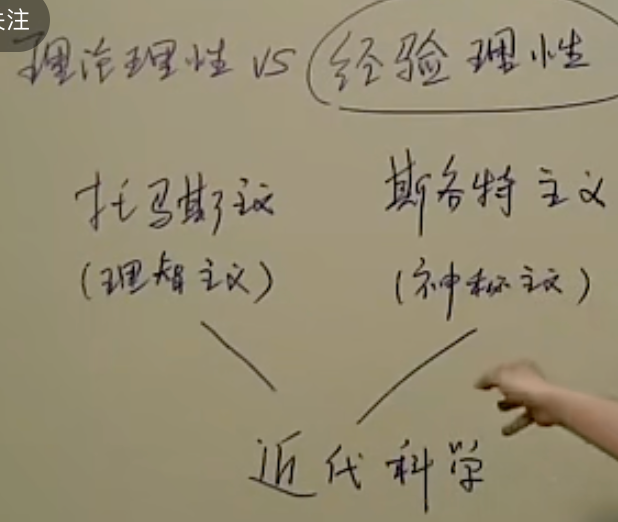 关注
理论理性 vs 经验理性
托马斯主义 斯各特主义
(理智主义) (神秘主义)
近代科学